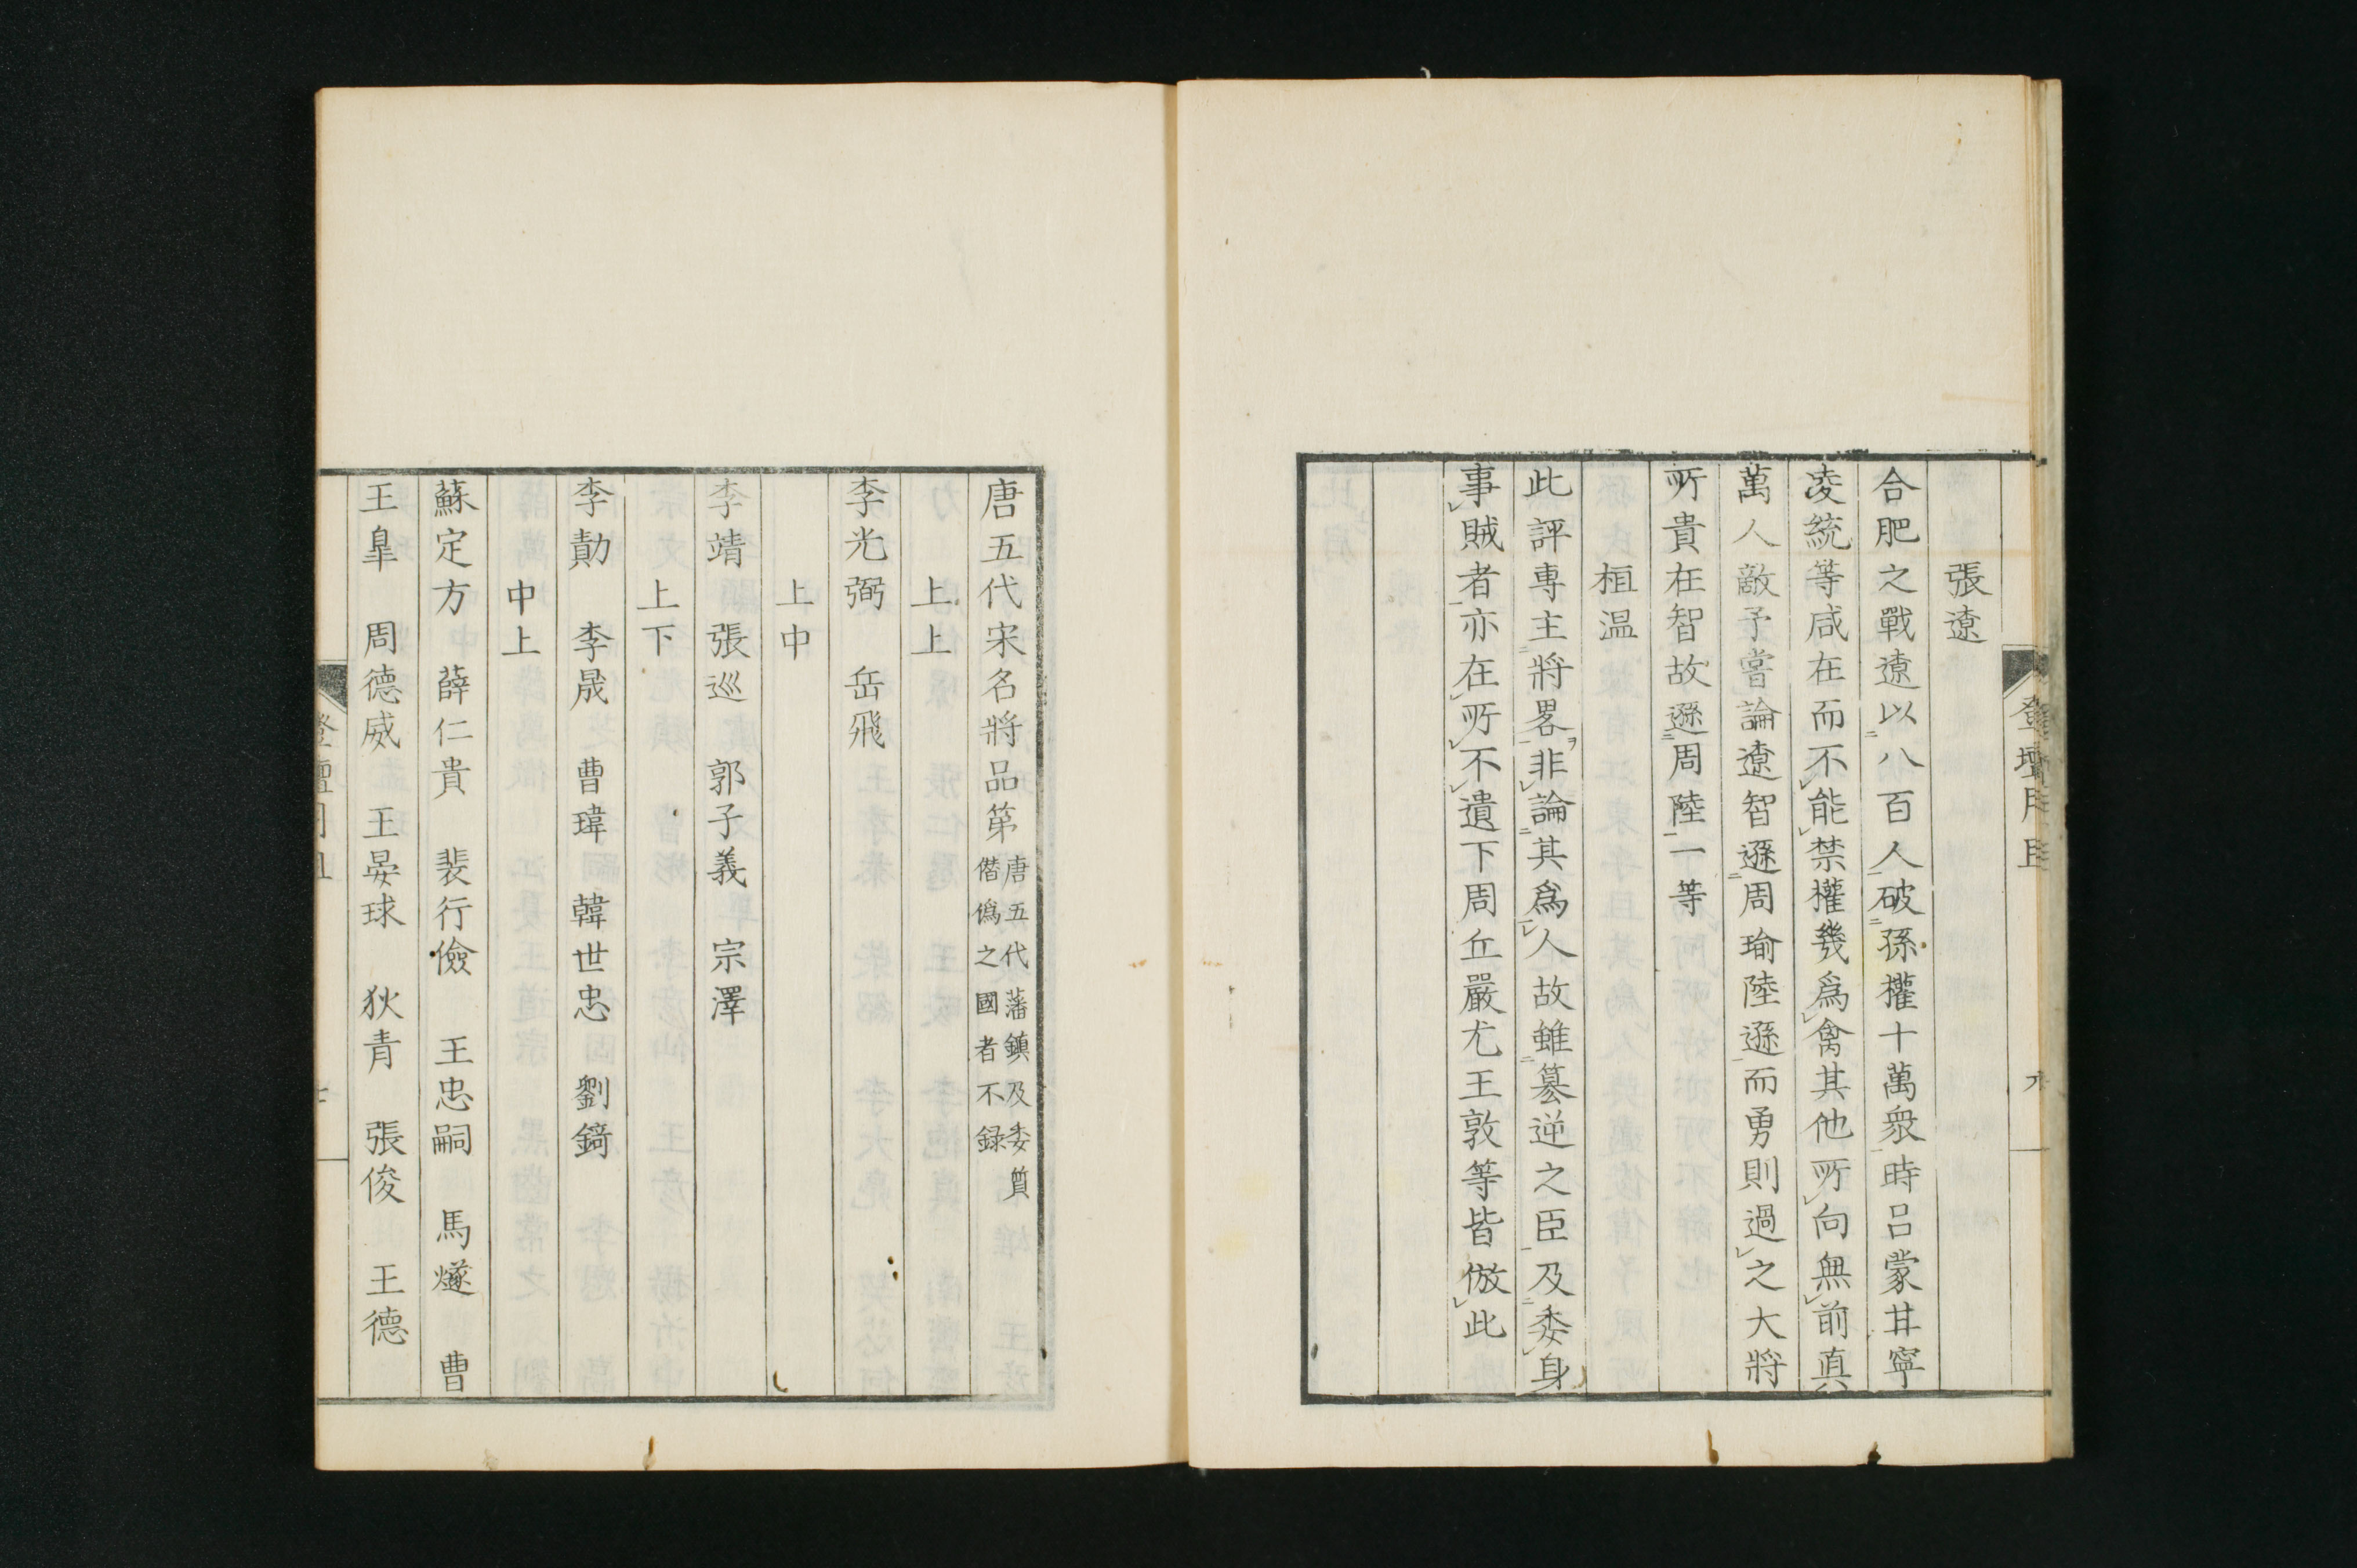 張遼
合肥之戰遼以八百人破孫權十萬衆時呂蒙甘寧
凌統等咸在而不能禁權幾爲禽其他所向無前真
萬人敵予嘗論遼智遜周瑜陸遜而勇則過之大將
所貴在智故遜周陸一等
桓温
此評專主將畧非論其爲人故雖簒逆之臣及委身
事賊者亦在所不遺下周丘嚴尤王敦等皆倣此
唐五代宋名將品第
唐五代藩鎮及委質
僭僞之國者不録
上上
李光弼　岳飛
上中
李靖　張巡　郭子義　宗澤
上下
李勣　李晟　曹瑋　韓世忠　劉錡
中上
蘇定方　薛仁貴　裴行儉　王忠嗣　馬燧　曹
王皐　周德威　王晏球　狄青　張俊　王德